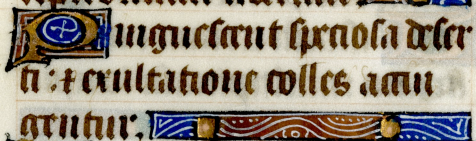 Pinguescent speciosa deser
ti : et exultatione colles accin
gentur.